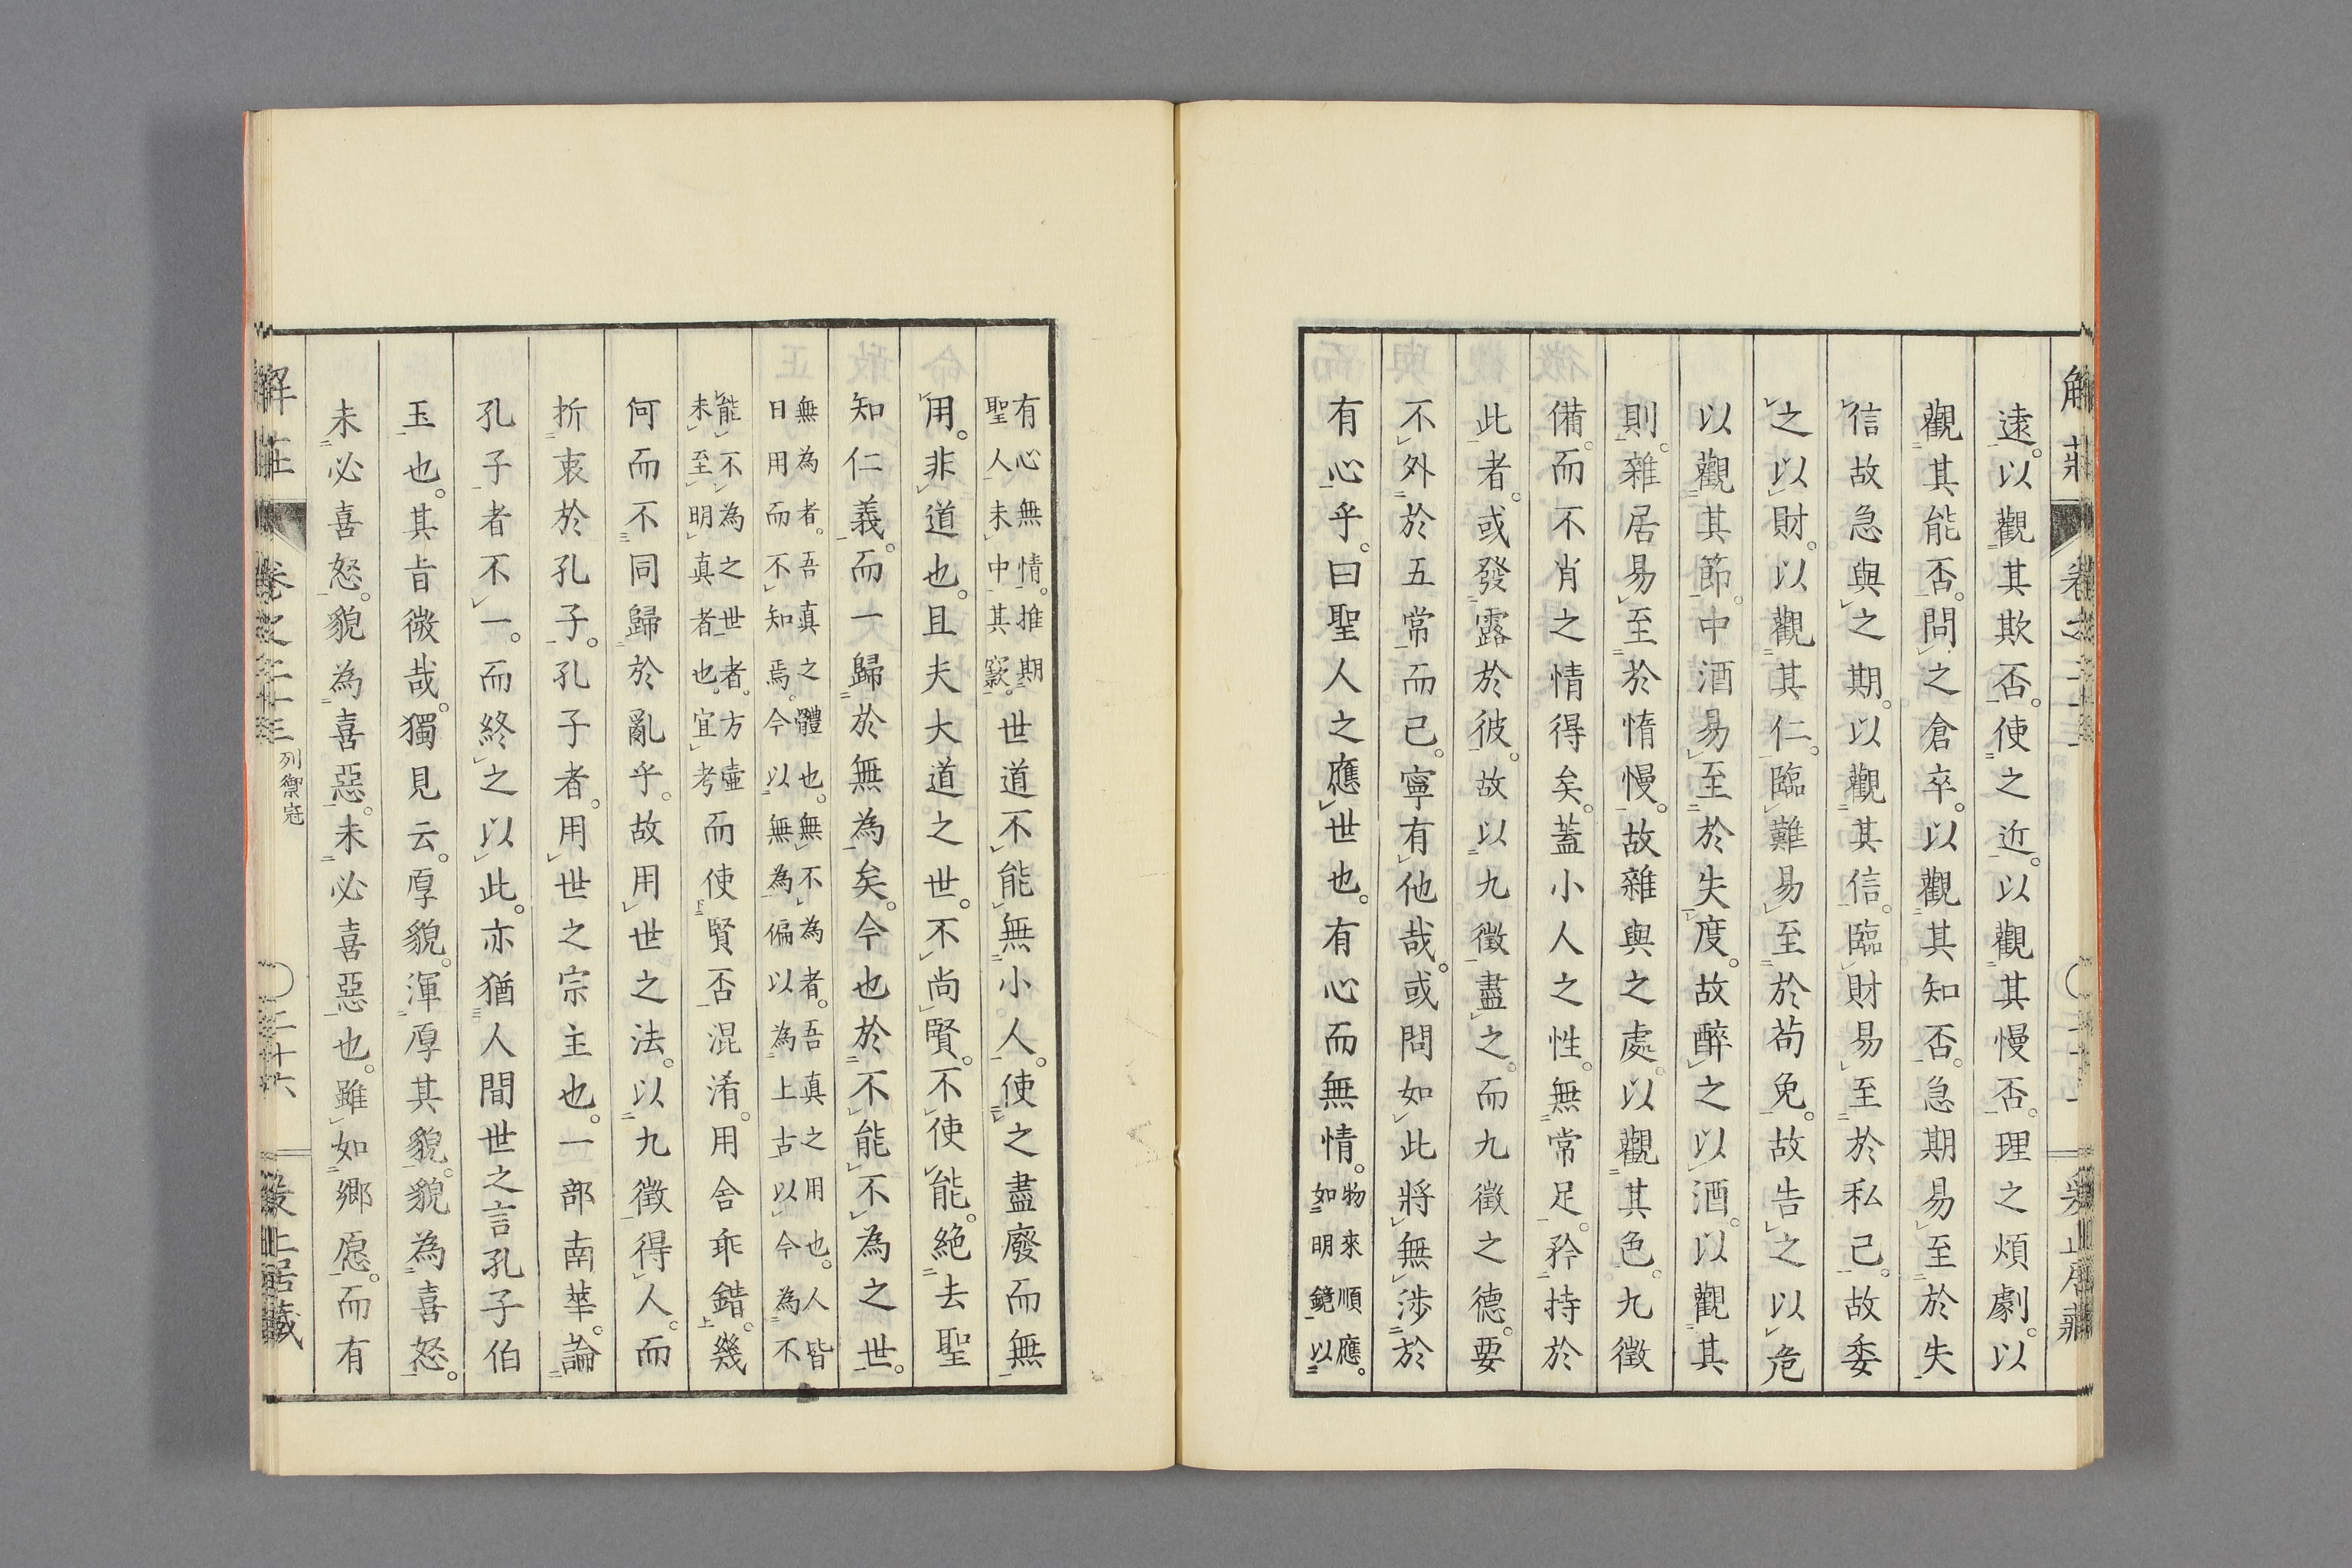 遠。以觀其欺否。使之近。以觀其慢否。理之煩劇。以
觀其能否。問之倉卒。以觀其知否。急期易至於失
信故急與之期。以觀其信。臨財易至於私己。故委
之以財。以觀其仁。臨難易至於苟免。故告之以危
以觀其節。中酒易至於失度。故醉之以酒。以觀其
則。雜居易至於惰慢。故雜與之處。以觀其色。九徵
備。而不肖之情得矣。蓋小人之性。無常足。矜持於
此者。或發露於彼。故以九徵盡之。而九徵之德。要
不外於五常而已。寧有他哉。或問如此將無涉於
有心乎。曰聖人之應世也。有心而無情。物來順應。如明鏡以
有心無情。推期聖人未中其竅。世道不能無小人。使之盡廢而無
用。非道也。且夫大道之世。不尚賢。不使能。絶去聖
知仁義。而一歸於無為矣。今也於不能不為之世。
無為者。吾真之體也。無不為者。吾真之用也。人皆日用而不知焉。今以無為偏以為上古以今為不
能不為之世者。方壺未至明真者也。宜考而使賢否混淆。用舍乖錯。幾
何而不同歸於亂乎。故用世之法。以九徵得人。而
折衷於孔子。孔子者。用世之宗主也。一部南華。論
孔子者不一。而終之以此。亦猶人間世之言孔子伯
玉也。其旨微哉。獨見云。厚貌。渾厚其貌。貌為喜怒。
未必喜怒。貌為喜惡。未必喜惡也。雖如鄉愿。而有
解莊 卷之二十三 列禦寇 二十六